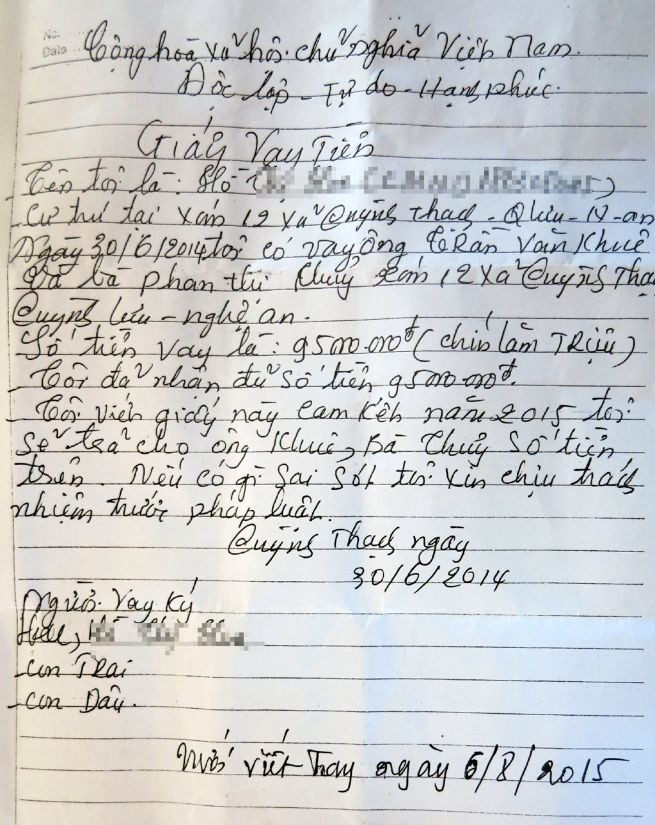 No.
Date
Cộng hoà xã hội chủ nghĩa Việt Nam.
Độc lập - Tự do - Hạnh phúc.
Giấy Vay Tiền
- Tên tôi là: Hồ
Cư trú tại xóm 12 xã Quỳnh Thạch - Q lưu - N-an
Ngày 30/6/2014 tôi có vay ông Trần Văn Khuê
Và bà phan thị thuỷ xóm 12 xã Quỳnh Thạ
Quỳnh lưu - nghệ an.
Số tiền vay là: 95000.000đ (chín lăm TRiệu)
- Tôi đã nhận đủ số tiền 95000.000đ.
- Tôi viết giấy này cam kết năm 2015 tôi
sẽ trả cho ông Khuê, Bà Thuỷ số tiền
trên. Nếu có gì sai sót tôi xin chịu trách
nhiệm trước pháp luật.
Quỳnh Thạch ngày
30/6/2014
Người vay ký
- con Trai
- con Dâu.
viết thay ngày 6/8/2015